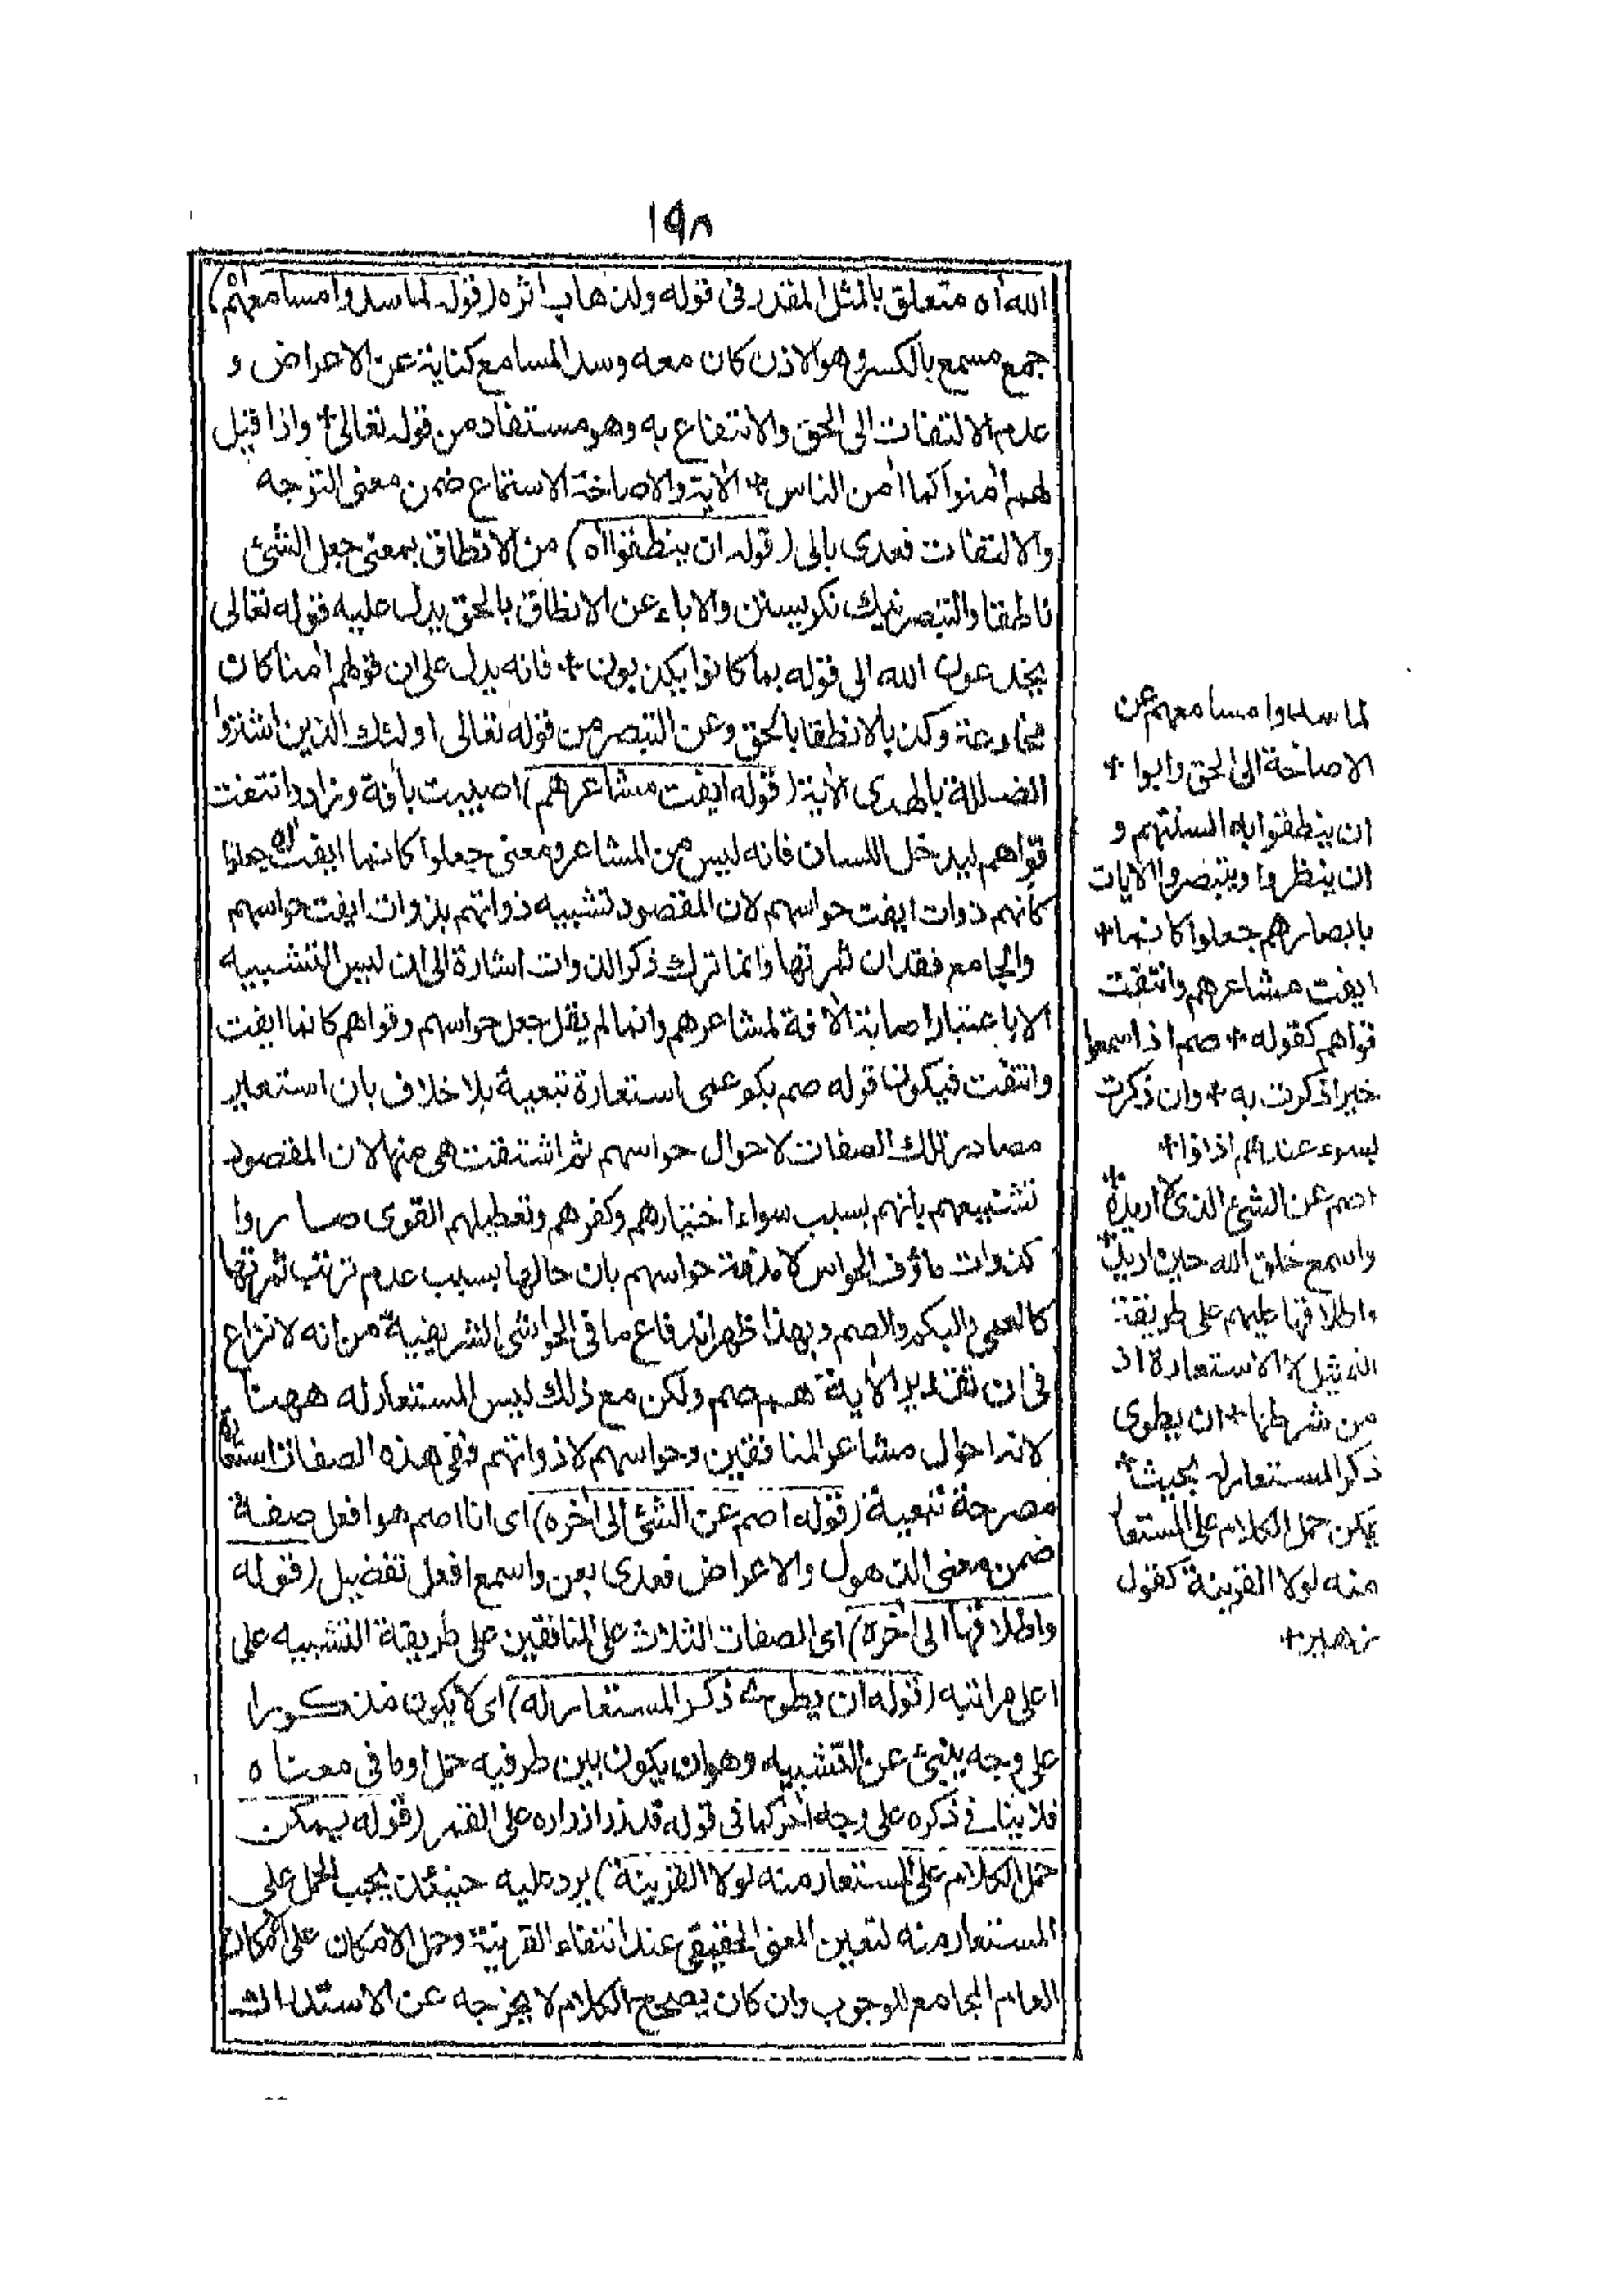 ١٩٨
الله اه متعلق بالمثل المقدر في قوله ولذهاب اثره (قوله لما سدوا مسامعهم)
جمع مسمع بالكسر وهو الاذن كان معه وسد المسامع كناية عن الاعراض و
عدم الالتفات الى الحق والانتفاع به وهو مستفاد من قوله تعالى + واذا قيل
لهم آمنوا كما آمن الناس + الآية والاصاخة الاستماع ضمن معنى التوجه
والالتفات فعدى بالى (قوله ان ينطقوا اه) من الانطاق بمعنى جعل الشئ
ناطقا والتبصر نيك نكريستن والاباء عن الانطاق بالحق يدل عليه قوله تعالى
يخدعون الله الى قوله بما كانوا يكذبون + فانه يدل على ان قولهم آمنا كان
مخادعة وكذبا لا نطقا بالحق وعن التبصر من قوله تعالى اولئك الذين اشتروا
الضللة بالهدى الآية (قوله ايفت مشاعرهم) اصيبت بآفة وزاد وانتفت
قواهم ليدخل اللسان فانه ليس من المشاعر ومعنى جعلوا كانما ايفت اه جعلوا
كأنهم ذوات ايفت حواسهم لان المقصود تشبيه ذواتهم بذوات ايفت حواسهم
والجامع فقدان ثمرتها وانما ترك ذكر الذوات اشارة الى ان ليس التشبيه
الا باعتبار اصابة الآفة لمشاعرهم وانما لم يقل جعل حواسهم وقواهم كانما ايفت
وانتفت فيكون قوله صم بكم عمى استعارة تبعية بلا خلاف بان استعير
مصادر تلك الصفات لاحوال حواسهم ثم اشتقت هي منها لان المقصود
تشبيههم بانهم بسبب سواء اختيارهم وكفرهم وتعطيلهم القوى صاروا
كذوات مأوف الحواس حواسهم بان حالها بسبب عدم ترتب ثمرتها
كالعمى والبكم والصم وبهذا ظهر اندفاع ما في الحواشي الشريفية من انه لا نزاع
في ان تقدير الآية هم صم ولكن مع ذلك ليس المستعار له ههنا
لانه احوال مشاعر المنافقين وحواسهم لا ذواتهم ففي هذه الصفات استعارة
مصرحة تبعية (قوله اصم عن الشئ الى آخره) اى انا اصم هو افعل صفة
ضمن معنى الذهول والاعراض فعدى بعن واسمع افعل تفضيل (قوله
واطلاقها الى آخره) اى الصفات الثلاث على المنافقين على طريقة التشبيه على
اعلى مراتبه (قوله ان يطوى ذكر المستعار له) اى لا يكون مذكورا
على وجه ينبئ عن التشبيه وهو ان يكون بين طرفيه حمل او ما في معناه
فلا ينافي ذكره على وجه آخر كما في قوله قد زر ازراره على القمر (قوله يمكن
حمل الكلام على المستعار منه لولا القرينة) يرد عليه حينئذ يجب الحمل على
المستعار منه لتعين المعنى الحقيقي عند انتفاء القرينة وحمل الامكان على الامكان
العام الجامع للوجوب وان كان يصحح الكلام لا يخرجه عن الاستدراك
لما سدوا مسامعهم عن
الاصاخة الى الحق وابوا +
ان ينطقوا به السنتهم و
ان ينظروا ويتبصروا الآيات
بابصارهم جعلوا كانما +
ايفت مشاعرهم وانتفت
قواهم كقوله + صم اذا سمعوا
خيرا ذكرت به + وان ذكرت
بسوء عندهم اذنوا +
اصم عن الشئ الذى لا اريده +
واسمع خلق الله حين اريد +
واطلاقها عليهم على طريقة
التمثيل لا الاستعارة اذ
من شرطها + ان يطوى
ذكر المستعار له بحيث +
يمكن حمل الكلام على المستعار
منه لولا القرينة كقول
زهير +